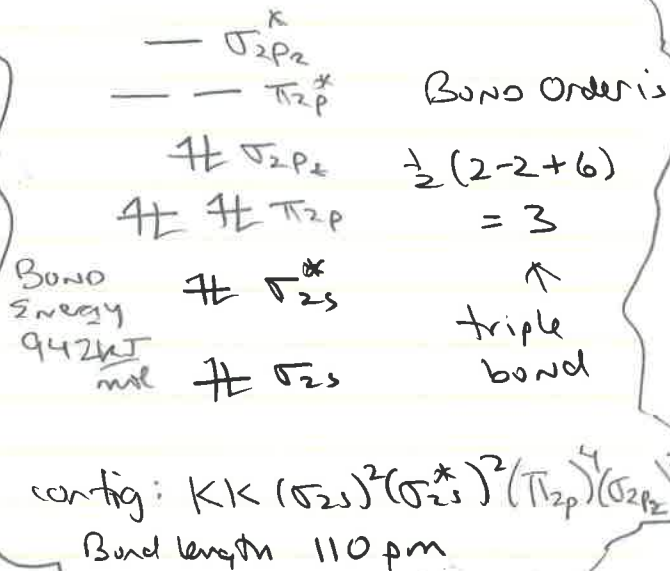 — σ*2pz
— — π*2p
Bond Order is
⥮ σ2pz
½ (2-2+6)
⥮ ⥮ π2p
= 3
Bond
Energy
942 kJ/mol
⥮ σ*2s
↑
triple
bond
⥮ σ2s
config: KK (σ2s)²(σ*2s)²(π2p)⁴(σ2pz)
Bond length 110 pm